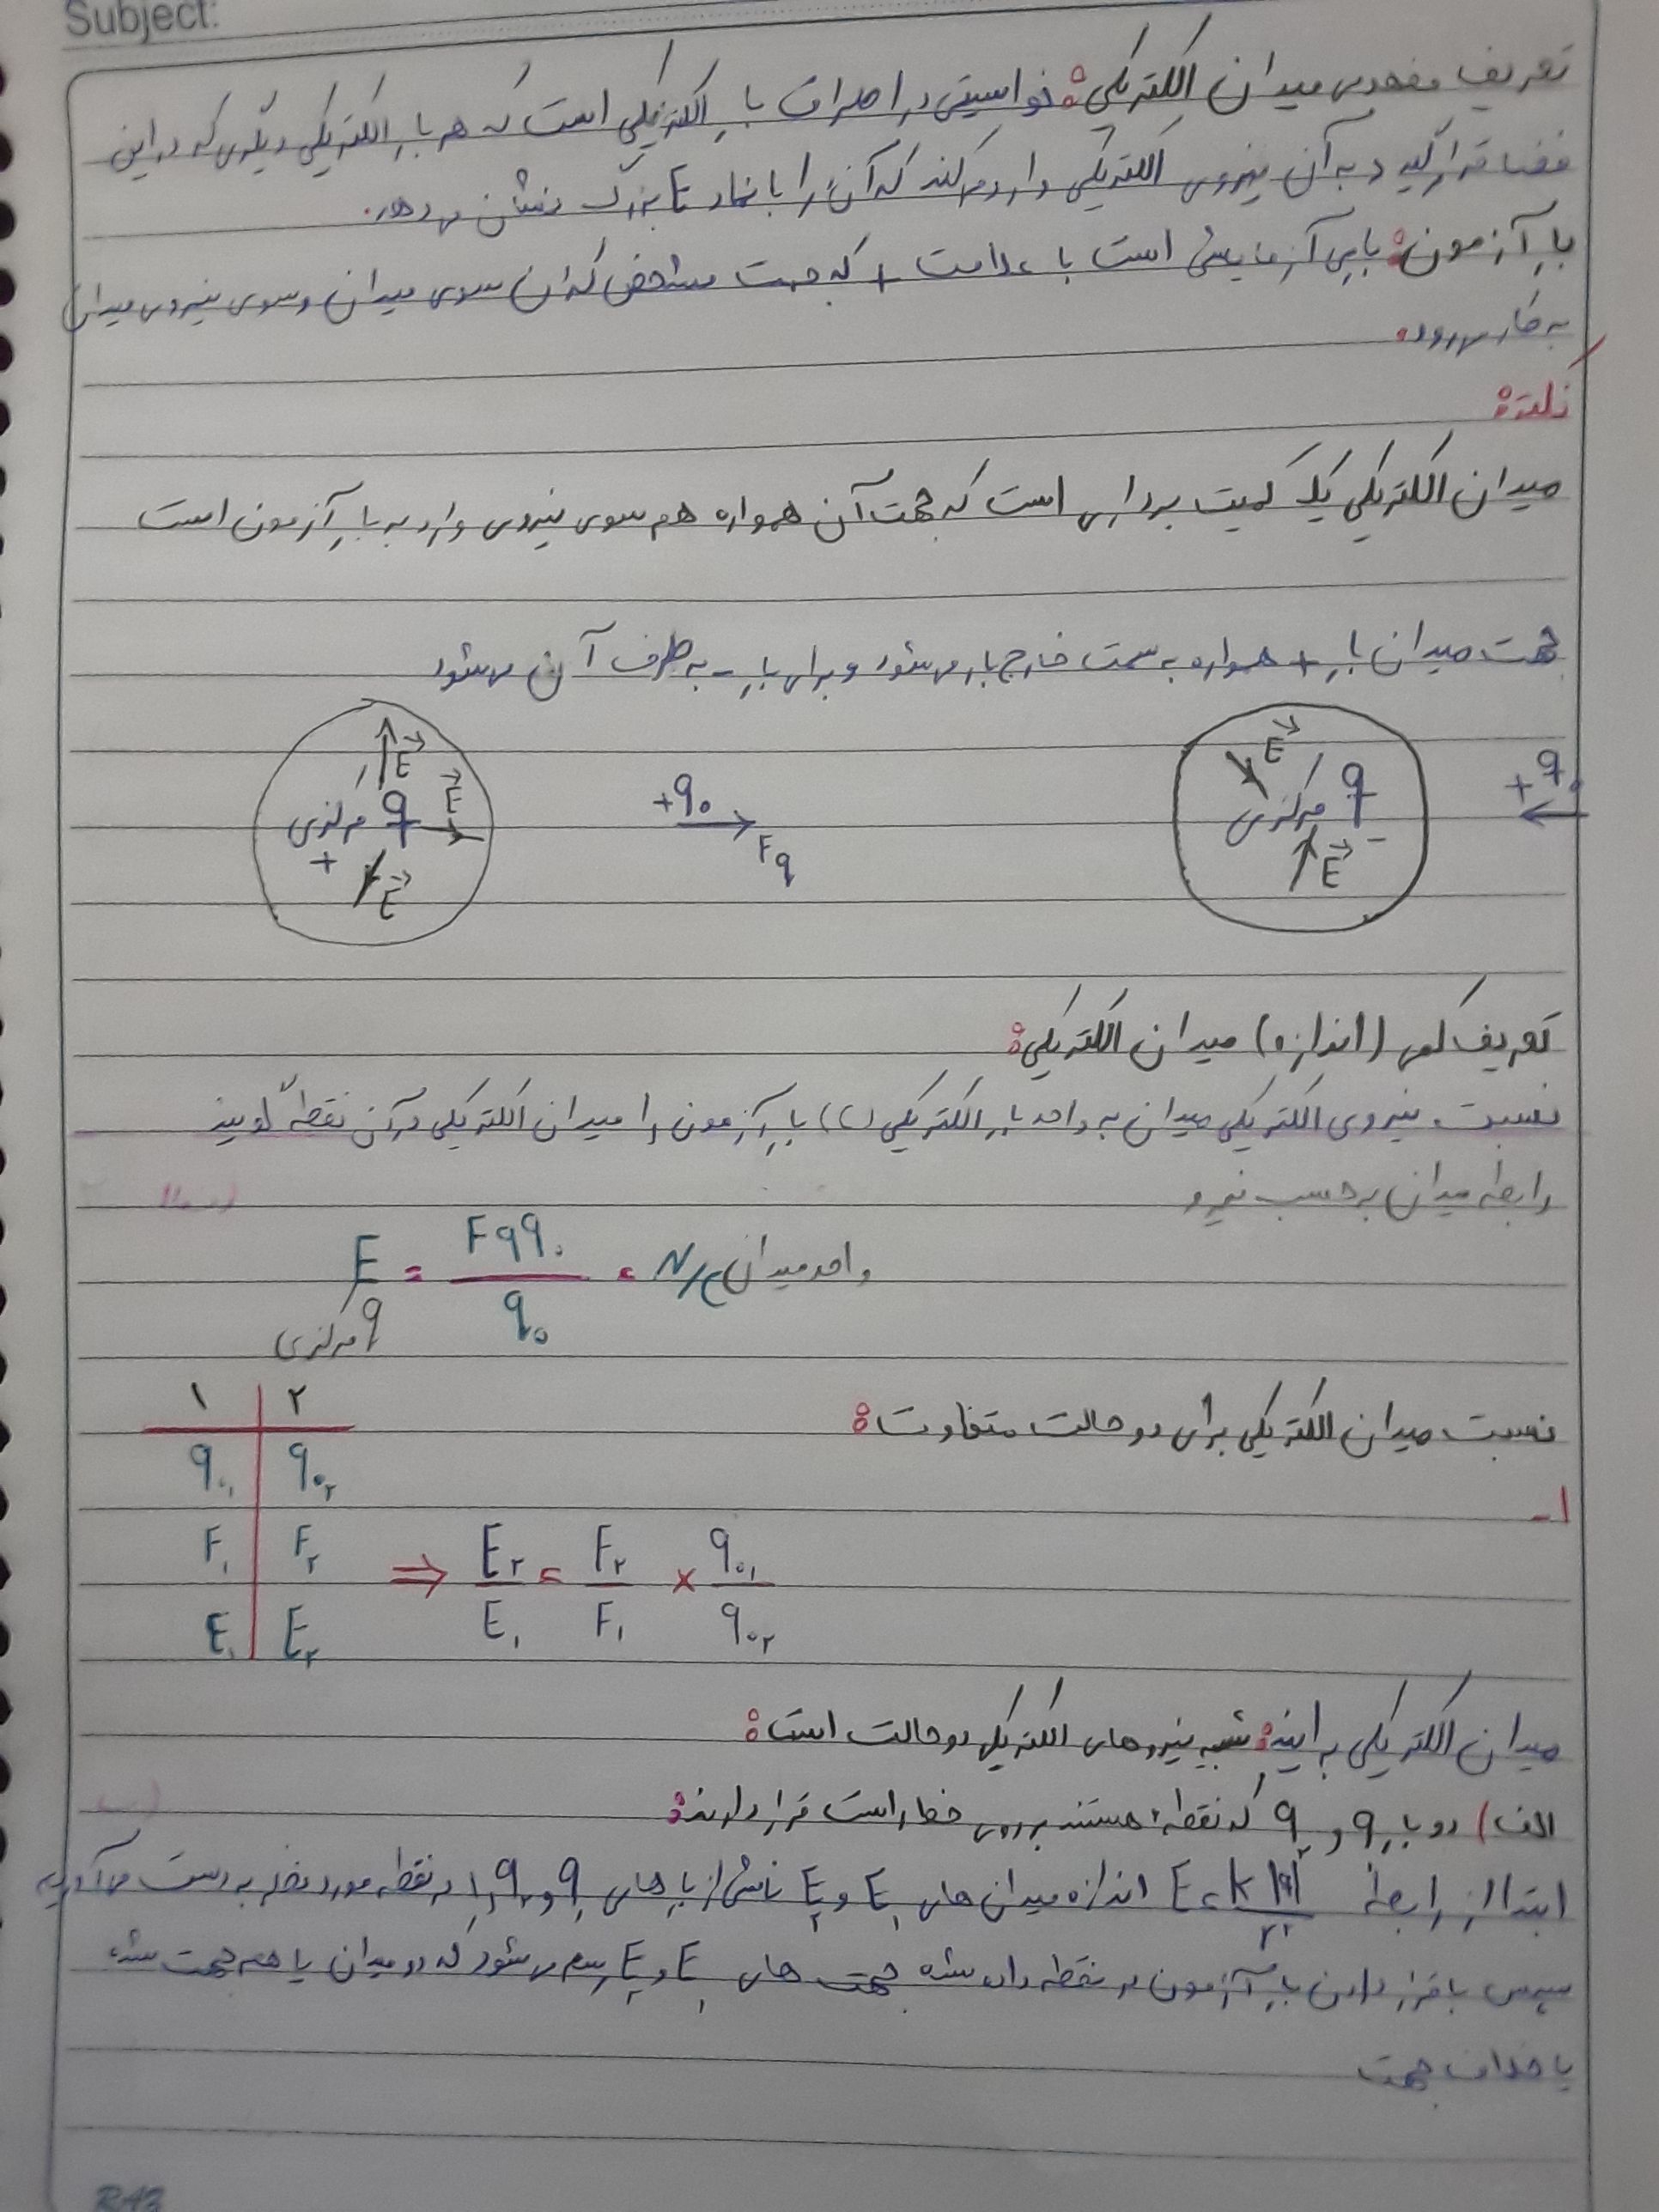 Subject:
تعریف مفهومی میدان الکتریکی: خواصیتی در اطراف بار الکتریکی است که هر بار الکتریکی دیگری که در این
فضا قرار گیرد به آن نیروی الکتریکی وارد می‌کند که آن را با نماد E بزرگ نشان می‌دهد.
بار آزمون: باری آزمایشی است با علامت + که جهت مشخص کردن سوی میدان و سوی نیروی میدان
به کار می‌رود.
نکته:
میدان الکتریکی یک کمیت برداری است که جهت آن همواره هم سوی نیروی وارد به بار آزمون است
جهت میدان بار + همواره به سمت خارج بار می‌شود و برای بار - به طرف آن می‌شود
E E q مرکزی + E
+q₀ Fq
E q مرکزی - E
+q₀
تعریف کمی (اندازه) میدان الکتریکی:
نسبت نیروی الکتریکی میدان به واحد بار الکتریکی (C) بار آزمون را میدان الکتریکی در آن نقطه گویند
رابطه میدان برحسب نیرو
E = Fqq₀ / q₀ = N/C واحد میدان
q مرکزی
نسبت میدان الکتریکی برای دو حالت متفاوت:
۱-
۱ | ۲
q₀₁ | q₀₂
F₁ | F₂ ⇒ E₂/E₁ = F₂/F₁ × q₀₁/q₀₂
E₁ | E₂
میدان الکتریکی برایند: شبیه نیروهای الکتریکی دو حالت است:
الف) دو بار q₁ و q₂ که نقطه‌ای هستند بر روی خط راست قرار دارند:
ابتدا از رابطهٔ E = k|q|/r² اندازه میدان های E₁ و E₂ ناشی از بارهای q₁ و q₂ را در نقطه مورد نظر به دست می‌آوریم
سپس با قرار دادن بار آزمون در نقطه داده شده جهت های E₁ و E₂ رسم می‌شود که دو میدان یا هم جهت شده
یا خلاف جهت
RAZ